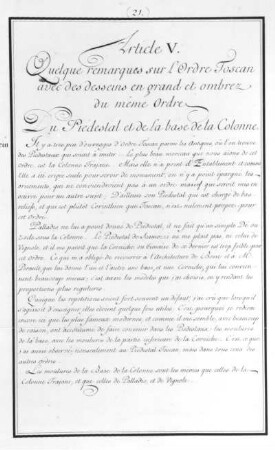 21.
Article V.
Quelque remarques sur l'Ordre Toscan
avec des desseins en grand et ombrez
du même Ordre
Du Piedestal et de la base de la Colonne.
Il y a trop peu d'ouvrages d'ordre Toscan parmi les Antiques, où l'on trouve
des Piedestaux qui soient à imiter: le plus beau morceau que nous aions de cet
ordre, est la Colonne Trajane. Mais elle n'a
elle a été conçue seule pour servir de monument; on n'y a point épargné les
ornements, qui ne conviendroient pas à un ordre massif que
pour un autre sujet; D'ailleurs son Piedestal qui est chargé de bas
reliefs, est plutôt Corinthien que Toscan,
cet ordre.
Palladio ne lui a point donné de Piedestal, il ne fait qu'un simple De
zocle sous la Colonne. Le Piedestal de Scamozzi ne me plaît pas, ni celui de
Vignole, et il me paroît que la Corniche ou Cimaise de ce dernier est trop foible pour
cet ordre. Ce qui m'a obligé de recourir à l'Architecture de
Perrault, qui lui donne l'un et l'autre une base, et une Corniche, qui lui convien
nent beaucoup mieux; c'est aussi les modeles que j'ai choisis, en y rendant les
proportions plus regulieres.
Quoique les repetitions soient fort souvent un défaut, j'ai crû que lorsqu'il
s'agissoit d'enseigner, elles étoient quelque fois utiles. C'est pourquoi je redirai
encore ici que les plus fameux modernes, et comme il me semble, avec beaucoup
de raison, ont
de la base, avec les moulures de la partie inferieure de la Corniche. C'est ce que
j'ai aussi observé, non seulement au Piedestal Toscan, mais dans tous ceux des
autres ordres.
Les moulures de la Base de la Colonne sont les mêmes que celles de la
Colonne Trajane, et que celles de Palladio, et de Vignole.